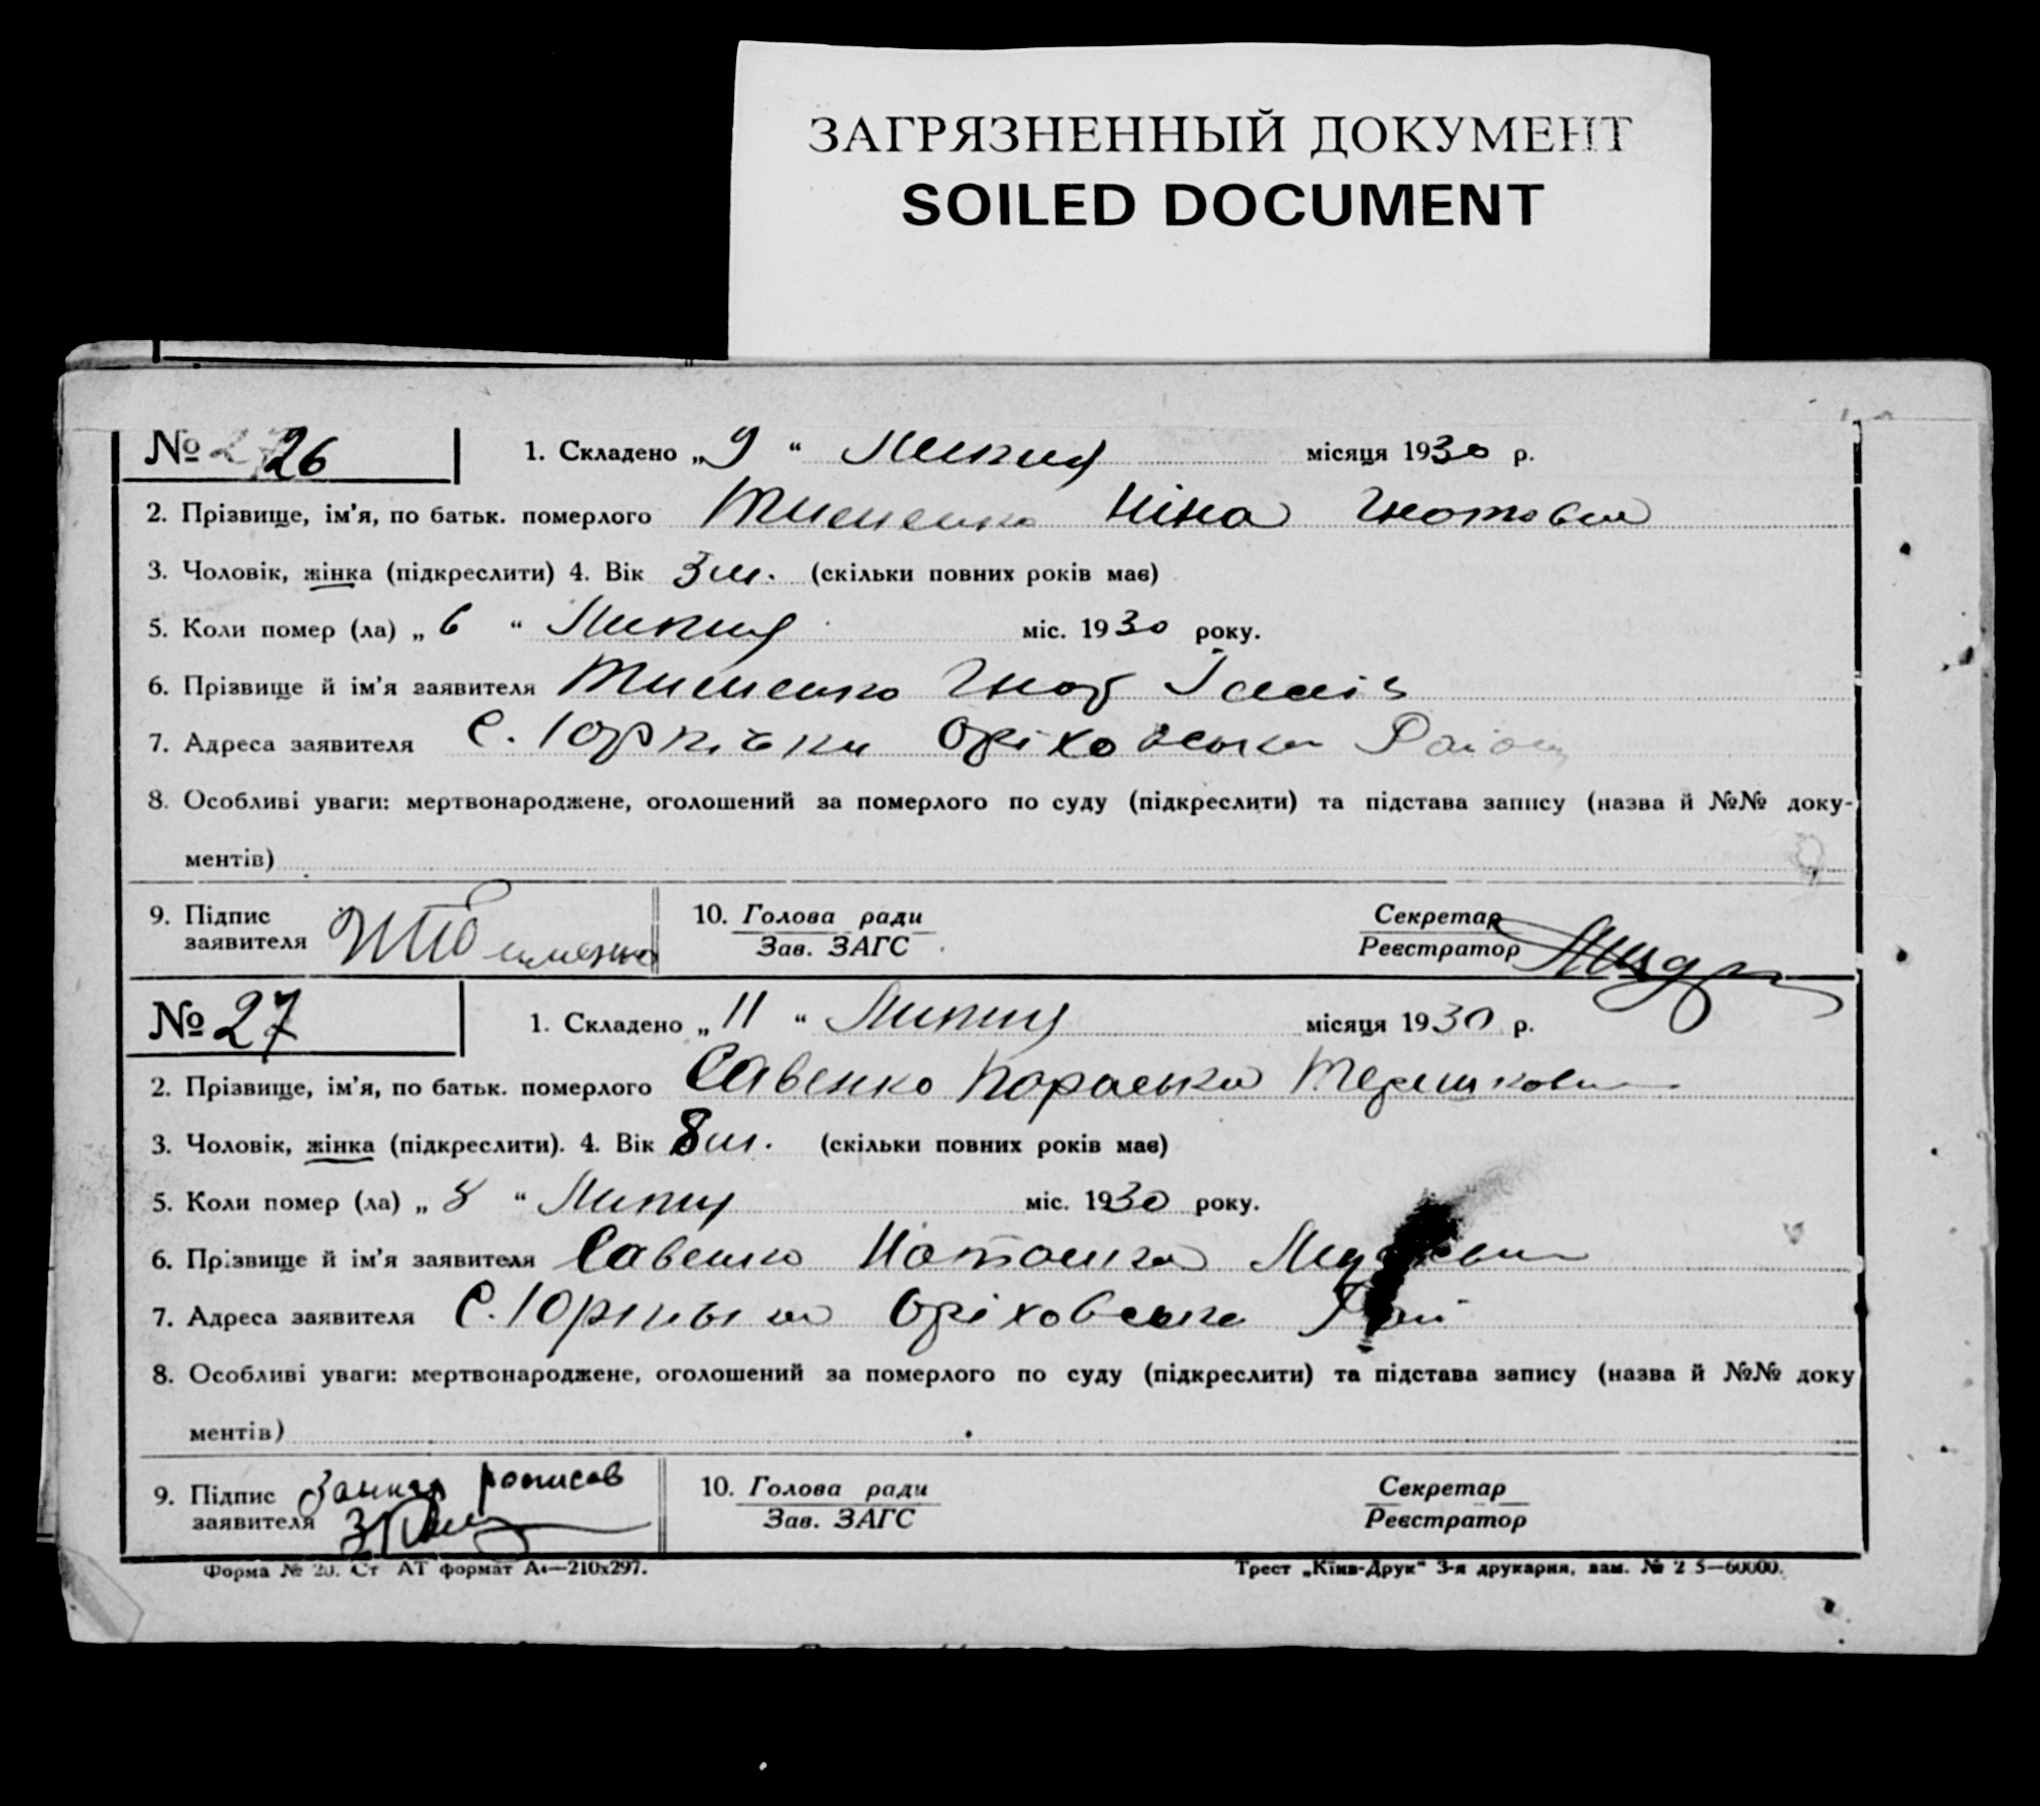 ЗАГРЯЗНЕННЫЙ ДОКУМЕНТ
SOILED DOCUMENT
№ 26 1. Складено „9“ Липня місяця 1930 р.
2. Прізвище, ім'я, по батьк. померлого Тименко Ніна Гнатовна
3. Чоловік, жінка (підкреслити) 4. Вік 3 м. (скільки повних років має)
5. Коли помер (ла) „6“ Липня міс. 1930 року.
6. Прізвище й ім'я заявителя Тименко Гнат
7. Адреса заявителя С. Юрківки Оріховська Район
8. Особливі уваги: мертвонароджене, оголошений за померлого по суду (підкреслити) та підстава запису (назва й №№ доку-
ментів)
9. Підпис заявителя 10. Голова ради Секретар
Зав. ЗАГС Реєстратор
№ 27 1. Складено „11“ Липня місяця 1930 р.
2. Прізвище, ім'я, по батьк. померлого Савенко Параска Терешковна
3. Чоловік, жінка (підкреслити). 4. Вік 8 м. (скільки повних років має)
5. Коли помер (ла) „8“ Липня міс. 1930 року.
6. Прізвище й ім'я заявителя Савенко Наташка
7. Адреса заявителя С. Оріховська Рай
8. Особливі уваги: мертвонароджене, оголошений за померлого по суду (підкреслити) та підстава запису (назва й №№ доку
ментів)
9. Підпис заявителя росписав 10. Голова ради Секретар
Зав. ЗАГС Реєстратор
Форма № 20. Ст АТ формат А4—210х297. Трест „Київ-Друк“ 3-я друкарня, зам. № 2 5—60000.